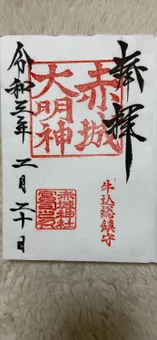 奉拝
赤城
大明神
牛込総鎮守
赤城神社
令和三年 二月 二十日